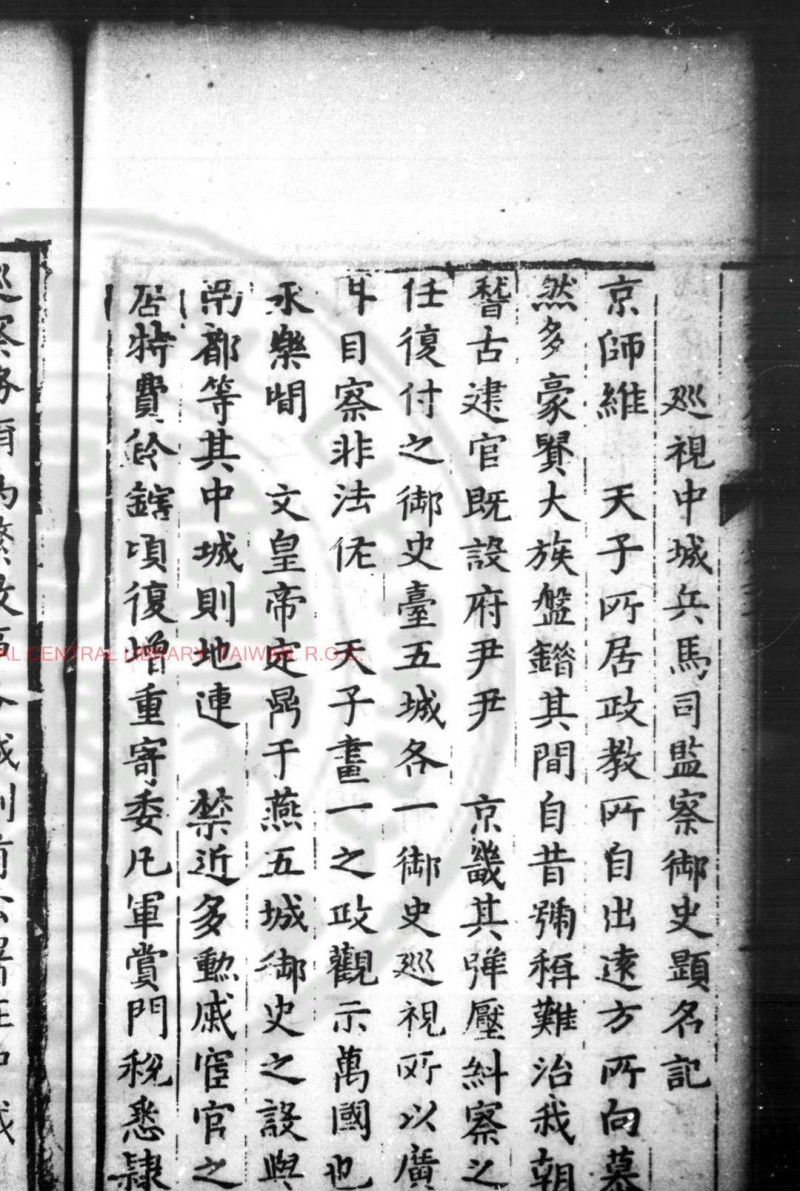 巡視中城兵馬司監察御史題名記
京師維　天子所居政教所自出遠方所向慕
然多豪賢大族盤錯其間自昔號稱難治我朝
稽古建官既設府尹尹　京畿其彈壓糾察之
任復付之御史臺五城各一御史巡視所以廣
耳目察非法佐　天子畫一之政觀示萬國也
永樂間　文皇帝定鼎于燕五城御史之設與
兩都等其中城則地連　禁近多勳戚宦官之
居特費鈐鎋頃復增重寄委凡軍賞門稅悉隸
CENTRAL LIBRARY, TAIWAN R.O.C.